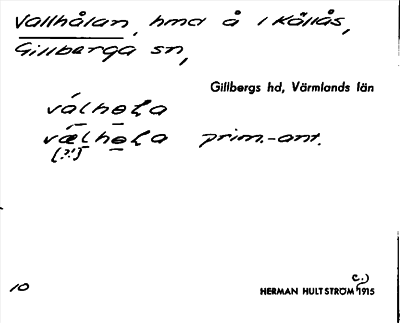 Vallhålan, hmd å 1 Källås,
Gillberga sn,
Gillbergs hd, Värmlands län
válhɵɽa
vælhɵɽa prim.-ant.
[?!]
c.)
10 HERMAN HULTSTRÖM 1915